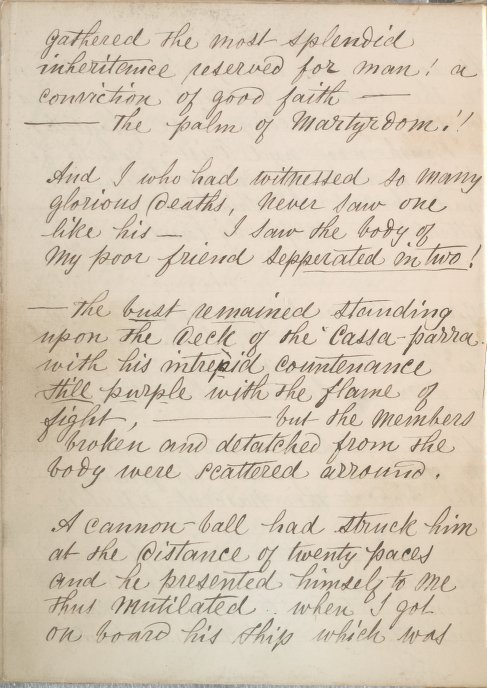 gathered the most splendid
inheritance reserved for man! a
conviction of good faith —
— the palm of Martyrdom!!
And I who had witnessed so many
glorious Deaths, Never saw one
like his — I saw the body of
My poor friend Sepperated in two!
— the bust remained standing
upon the Deck of the "Cassa-parra
with his intrepid countenance
still purple with the flame of
fight, — but the Members
broken and detatched from the
body were scattered arround.
A cannon-ball had struck him
at the Distance of twenty paces
and he presented himself to Me
thus Mutilated .. when I got
on board his ship which was